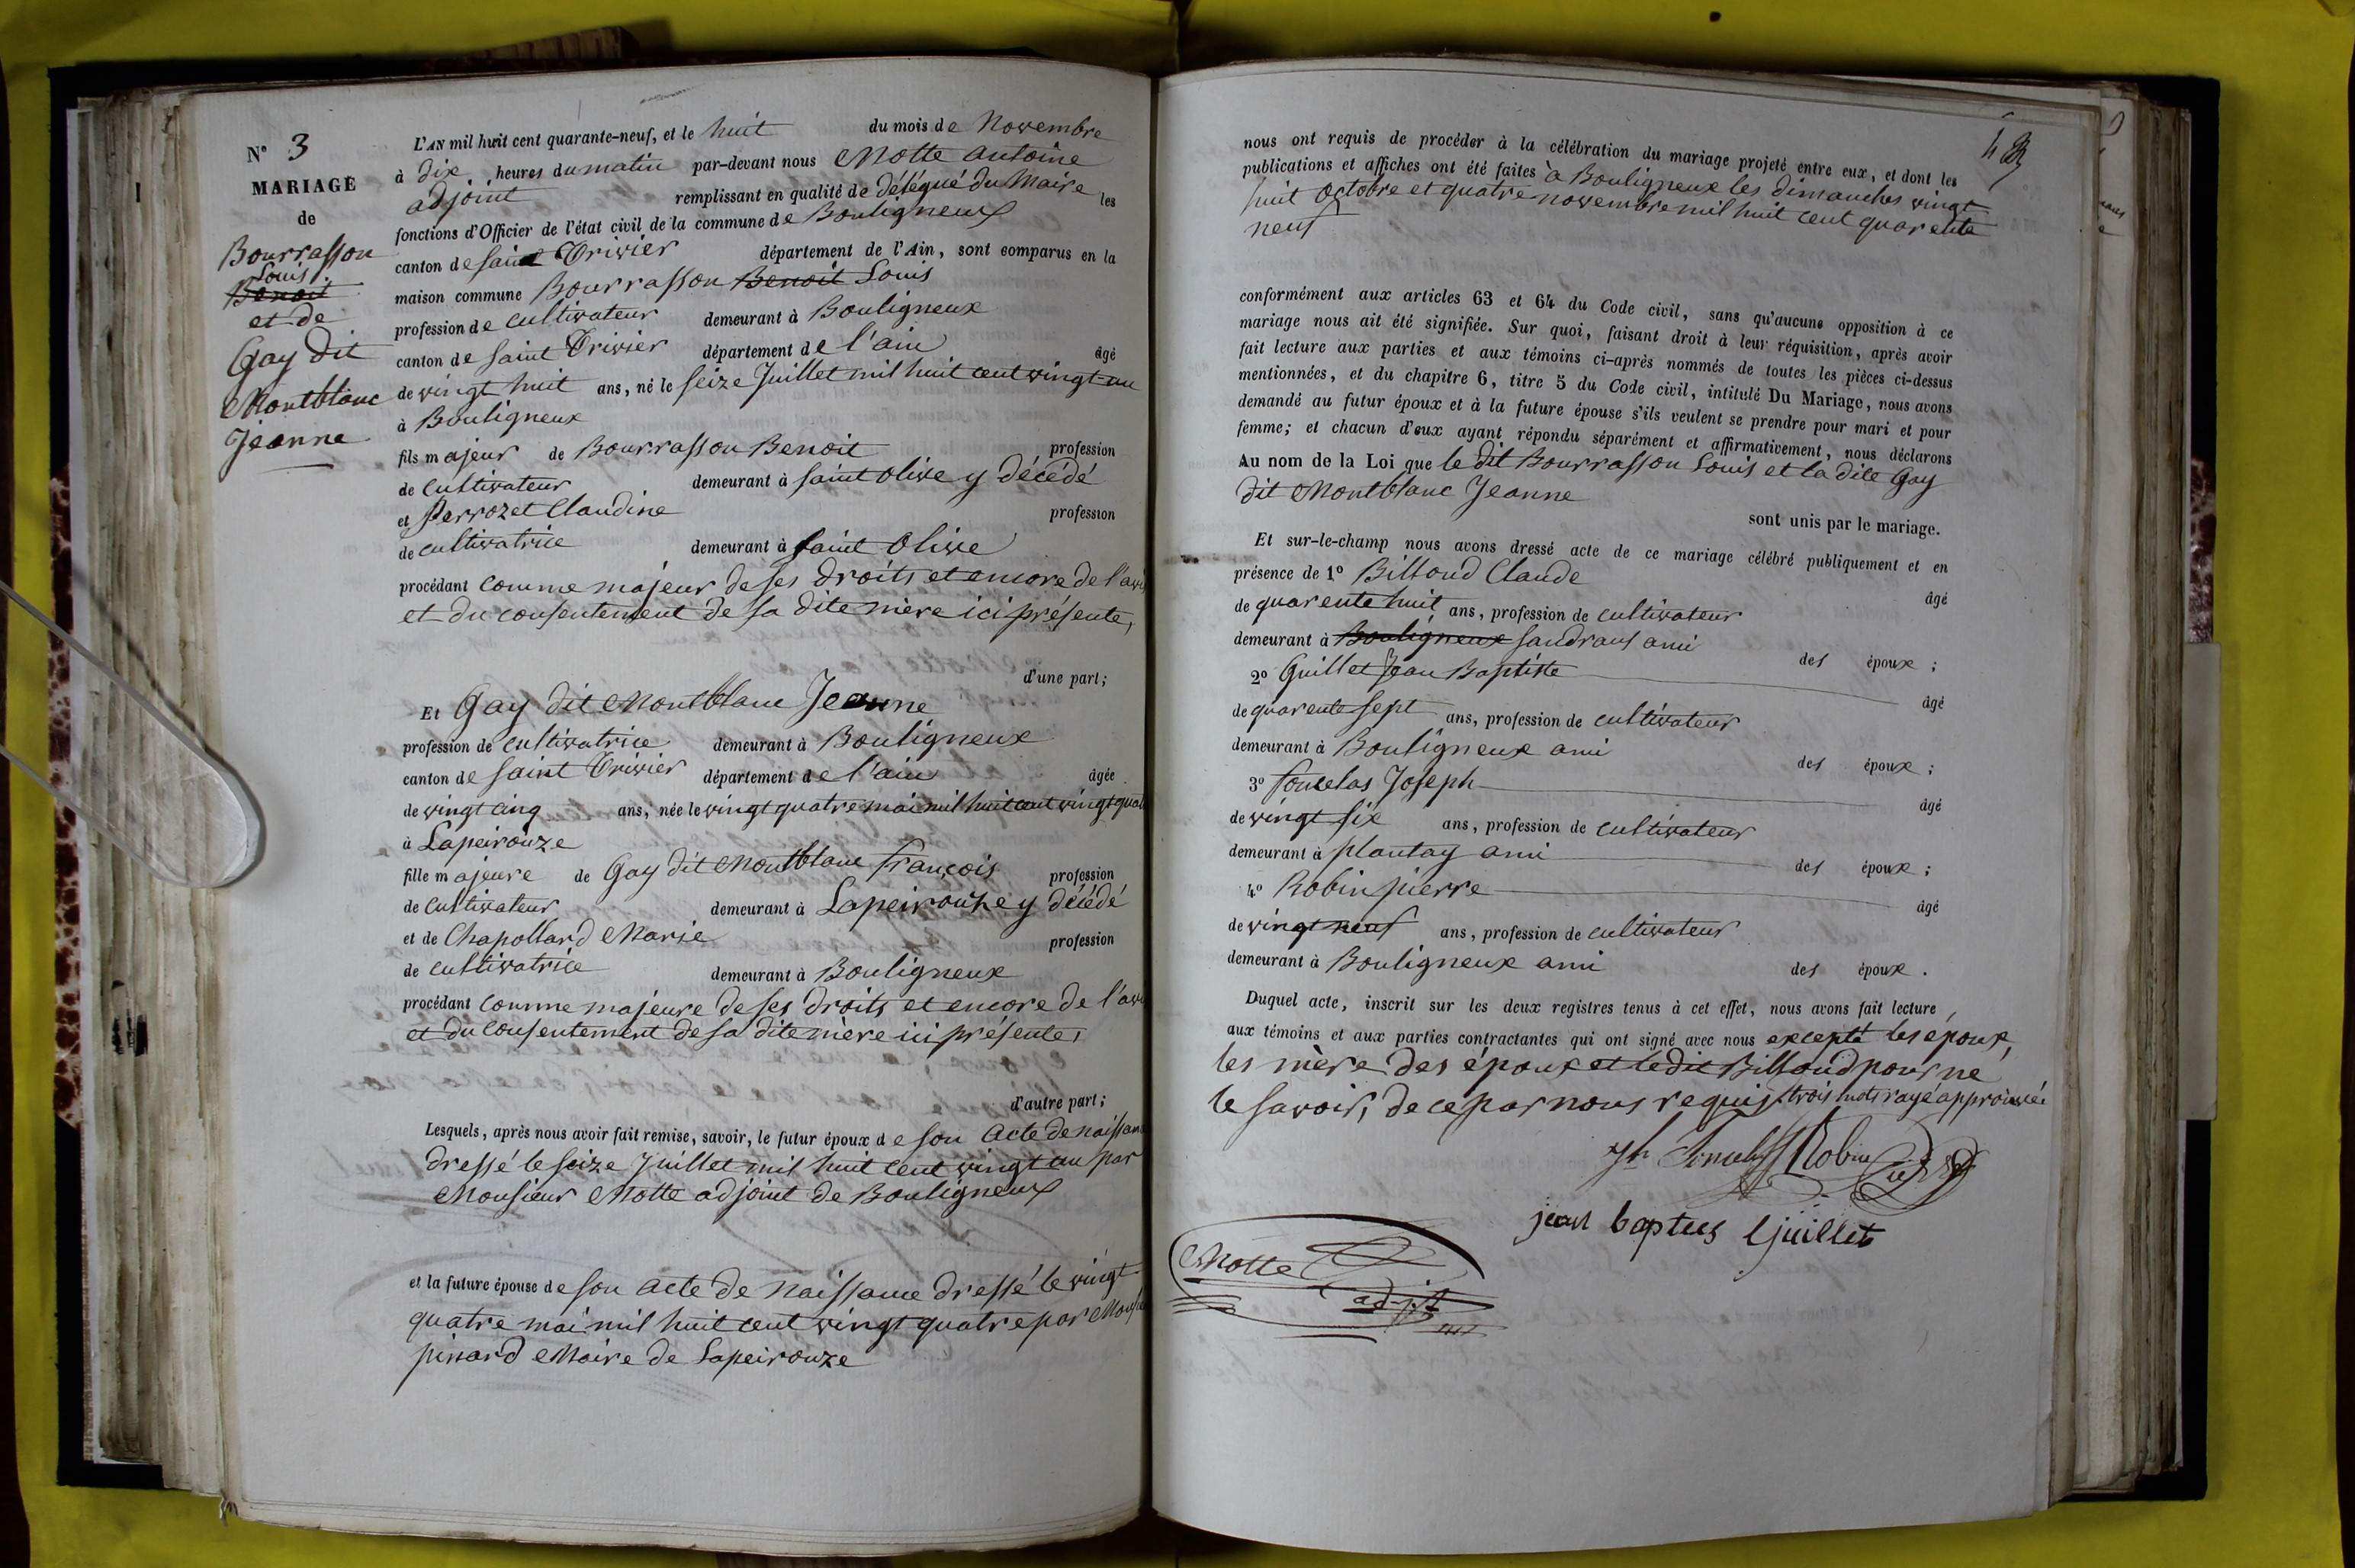 N° 3
MARIAGE
de
Bourrasson
Louis
Benoit
et de
Gay dit
Montblanc
Jeanne
L'AN mil huit cent quarante-neuf, et le huit du mois de Novembre
à dix heures du matin par-devant nous Motte Antoine
adjoint remplissant en qualité de délégué du Maire les
fonctions d'Officier de l'état civil de la commune de Bouligneux
canton de saint Trivier département de l'Ain, sont comparus en la
maison commune Bourrasson Benoit Louis
profession de cultivateur demeurant à Bouligneux
canton de saint Trivier département de l'ain âgé
de vingt huit ans, né le seize Juillet mil huit cent vingt un
à Bouligneux
fils majeur de Bourrasson Benoit profession
de cultivateur demeurant à saint Olive y décédé
et Perrozet Claudine profession
de cultivatrice demeurant à saint Olive
procédant comme majeur de ses droits et encore de l'avis
et du consentement de sa dite mère ici présente,
d'une part;
Et Gay dit Montblanc Jeanne
profession de cultivatrice demeurant à Bouligneux
canton de saint Trivier département de l'ain âgée
de vingt cinq ans, née le vingt quatre mai mil huit cent vingt quat
à Lapeirouze
fille majeure de Gay dit Montblanc françois profession
de cultivateur demeurant à Lapeirouze y décédé
et de Chapollard Marie profession
de cultivatrice demeurant à Bouligneux
procédant comme majeure de ses droits et encore de l'avi
et du consentement de sa dite mère ici présente,
d'autre part;
Lesquels, après nous avoir fait remise, savoir, le futur époux de son acte de naissan
dressé le seize Juillet mil huit cent vingt un par
Monsieur Motte adjoint de Bouligneux
et la future épouse de son acte de naissance dressé le vingt
quatre mai mil huit cent vingt quatre par Mons
pinard Maire de Lapeirouze
43
nous ont requis de procéder à la célébration du mariage projeté entre eux, et dont les
publications et affiches ont été faites à Bouligneux les dimanches vingt
huit octobre et quatre novembre mil huit cent quarente
neuf
conformément aux articles 63 et 64 du Code civil, sans qu'aucune opposition à ce
mariage nous ait été signifiée. Sur quoi, faisant droit à leur réquisition, après avoir
fait lecture aux parties et aux témoins ci-après nommés de toutes les pièces ci-dessus
mentionnées, et du chapitre 6, titre 5 du Code civil, intitulé Du Mariage, nous avons
demandé au futur époux et à la future épouse s'ils veulent se prendre pour mari et pour
femme; et chacun d'eux ayant répondu séparément et affirmativement, nous déclarons
Au nom de la Loi que le dit Bourrasson Louis et la dite Gay
dit Montblanc Jeanne
sont unis par le mariage.
Et sur-le-champ nous avons dressé acte de ce mariage célébré publiquement et en
présence de 1° Billoud Claude
âgé
de quarente huit ans, profession de cultivateur
demeurant à Bouligneux sandrans ami des époux;
2° Guillet Jean Baptiste
âgé
de quarente sept ans, profession de cultivateur
demeurant à Bouligneux ami des époux;
3° Joseph
âgé
de vingt six ans, profession de cultivateur
demeurant à plantay ami des époux;
4° Robin pierre
âgé
de vingt neuf ans, profession de cultivateur
demeurant à Bouligneux ami des époux.
Duquel acte, inscrit sur les deux registres tenus à cet effet, nous avons fait lecture
aux témoins et aux parties contractantes qui ont signé avec nous excepté les époux,
les mère des époux et le dit Billoud pour ne
le savoir, de ce par nous requis. trois mots rayé approuvé
Robin
jean baptus Guillet
Motte
adjt